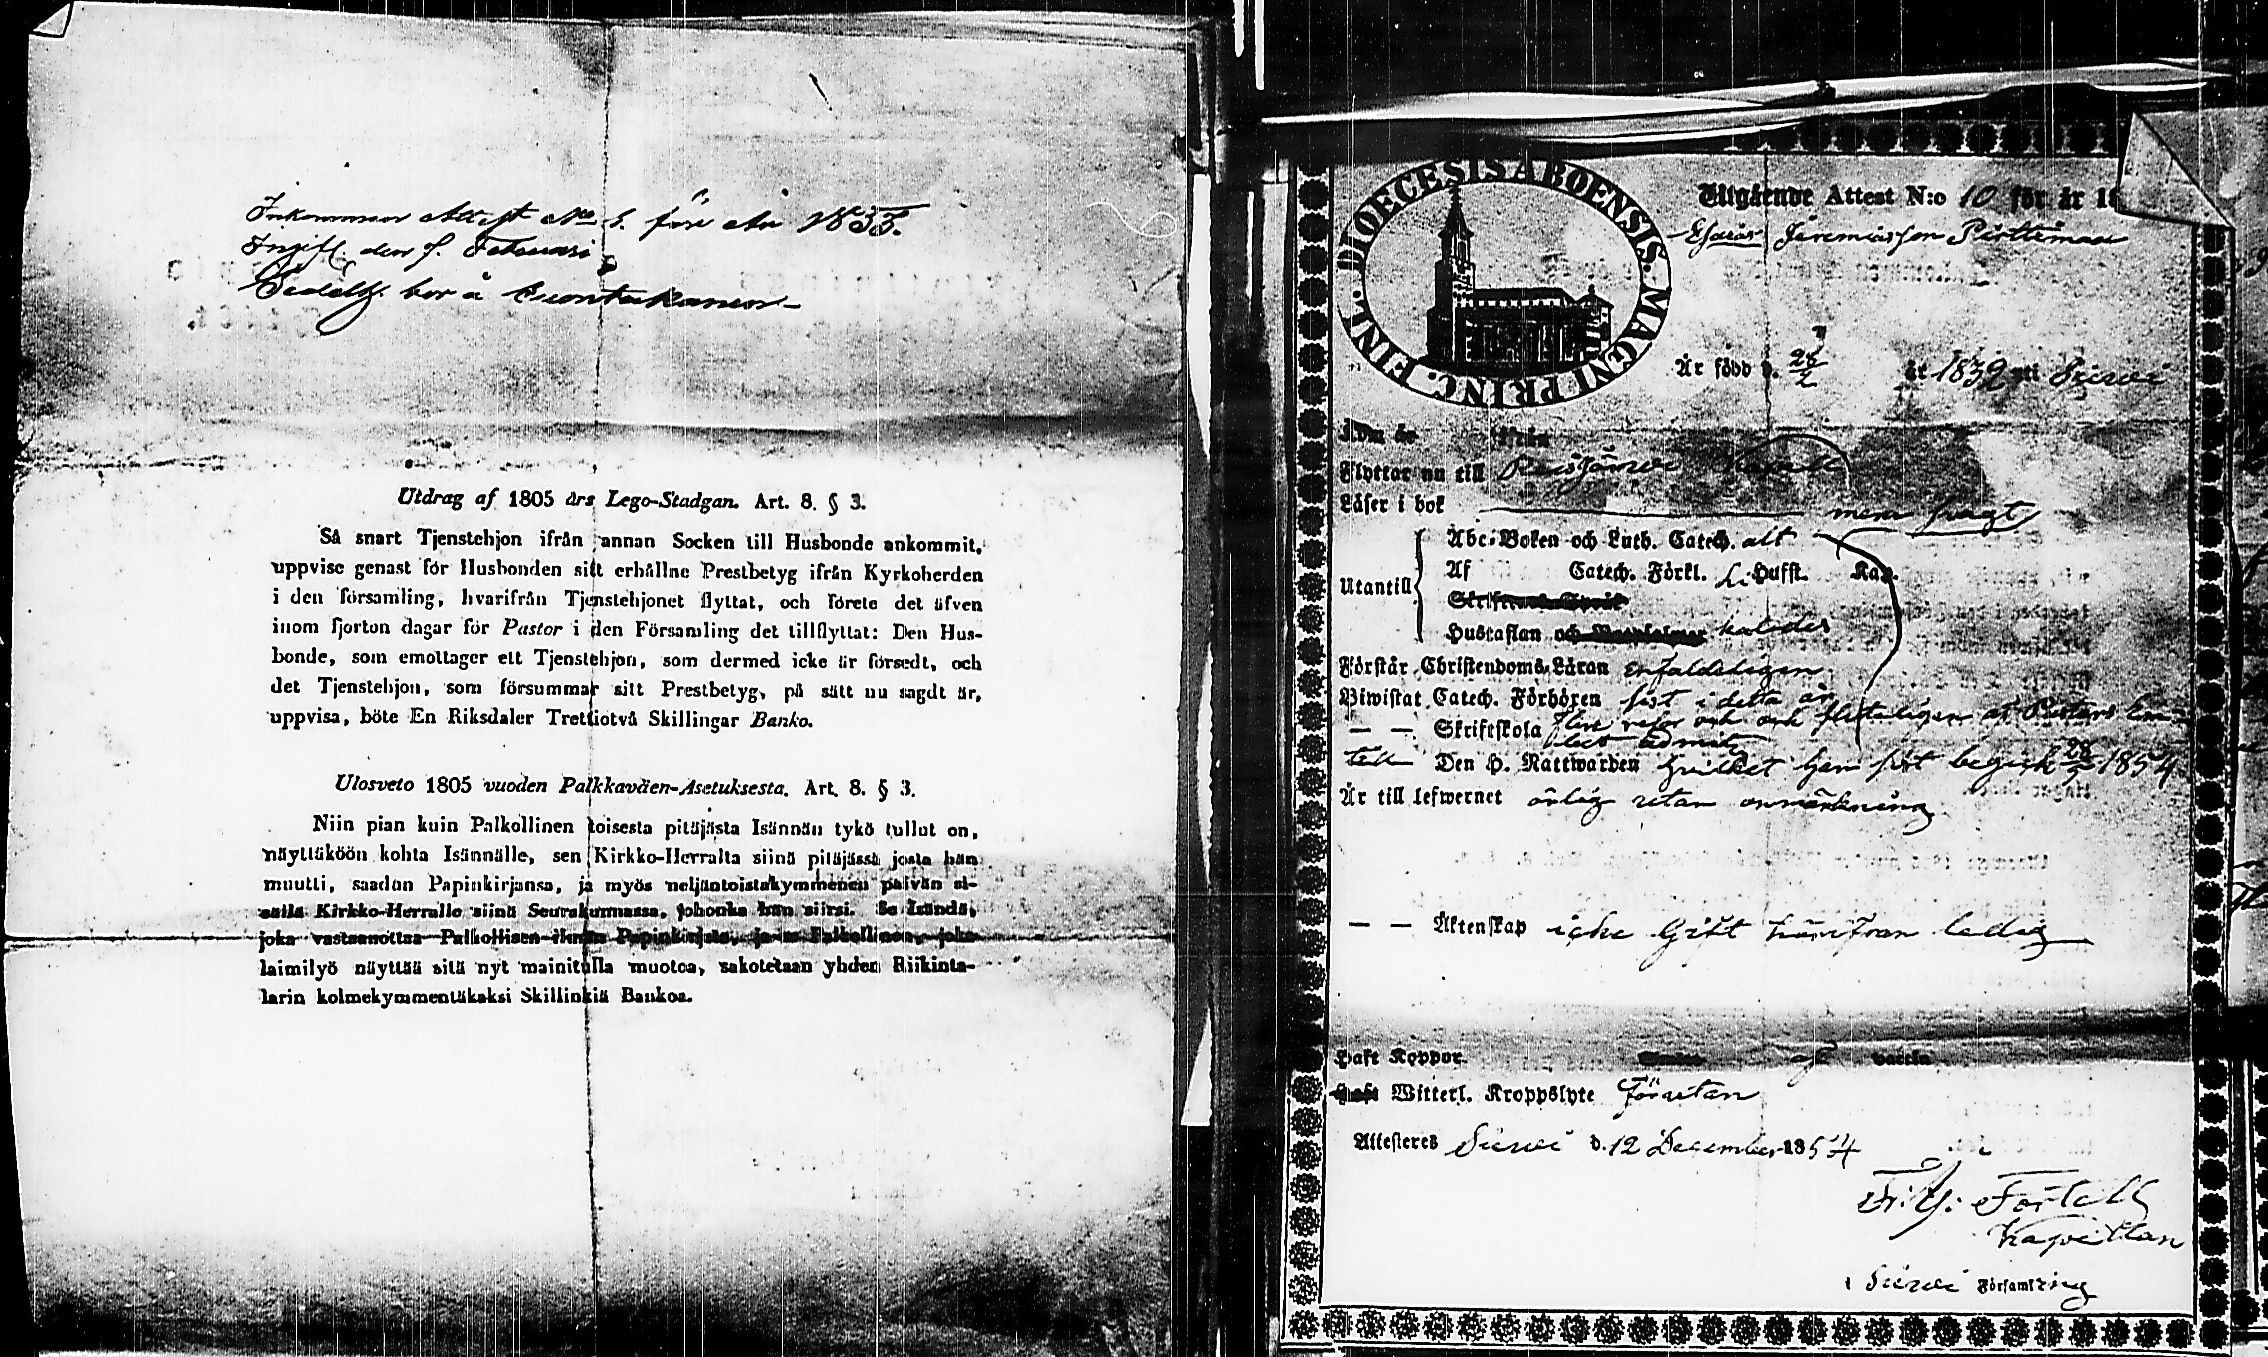 Inkommen Attest No 6. före år 1855.
Ingift. den 8. Februari
bor å
Utdrag af 1805 års Lego-Stadgan. Art. 8. § 3.
Så snart Tjenstehjon ifrån annan Socken till Husbonde ankommit,
uppvise genast för Husbonden sitt erhållne Prestbetyg ifrån Kyrkoherden
i den församling, hvarifrån Tjenstehjonet flyttat, och förete det äfven
inom fjorton dagar för Pastor i den Församling det tillflyttat: Den Hus-
bonde, som emottager ett Tjenstehjon, som dermed icke är försedt, och
det Tjenstehjon, som försummar sitt Prestbetyg, på sätt nu sagdt är,
uppvisa, böte En Riksdaler Trettiotvå Skillingar Banko.
Ulosveto 1805 vuoden Palkkaväen-Asetuksesta. Art. 8. § 3.
Niin pian kuin Palkollinen toisesta pitäjästä Isännän tykö tullut on,
näyttäköön kohta Isännälle, sen Kirkko-Herralta siinä pitäjässä josta hän
muutti, saadun Papinkirjansa, ja myös neljäntoistakymmenen päivän si-
sällä Kirkko-Herralle siinä Seurakunnassa, johonka hän siirsi. Se Isändä,
joka vastaanottaa Palkollisen ilman Papinkirjata, ja se Palkollinen, joka
laimilyö näyttää sitä nyt mainitulla muotoa, sakotetaan yhden Riikinta-
larin kolmekymmentäkaksi Skillinkiä Bankoa.
DIOECESIS ABOENSIS. MAGNI PRINC. FINL.
Utgående Attest N:o 10 för år 18
Esaias Jeremiasson Pirttimaa
Är född d. 28/2 år 1832 uti Siewi
från
Flyttar nu till Reisjärwi Kapell
Läser i bok men swagt
Utantill
Abc-Boken och Luth. Catech. alt
Af Catech. Förkl. Li. Hufst. Kap.
Skriftens Språk
Hustaflan och
Förstår Christendoms-Läran enfaldeligen
Biwistat Catech. Förhören sist i detta år
— — Skriftskola flere resor och
Den H. Nattwarden hvilket han sist begick 28/5 1854
Är till lefwernet ärlig utan anmärkning
— — Äktenskap icke gift härifrån ledig
Haft Koppor.
Haft Witterl. Kroppslyte Förutan
Attesteras Siewi d. 12 December 1854
Fortell
Kapellan
i Siewi Församling